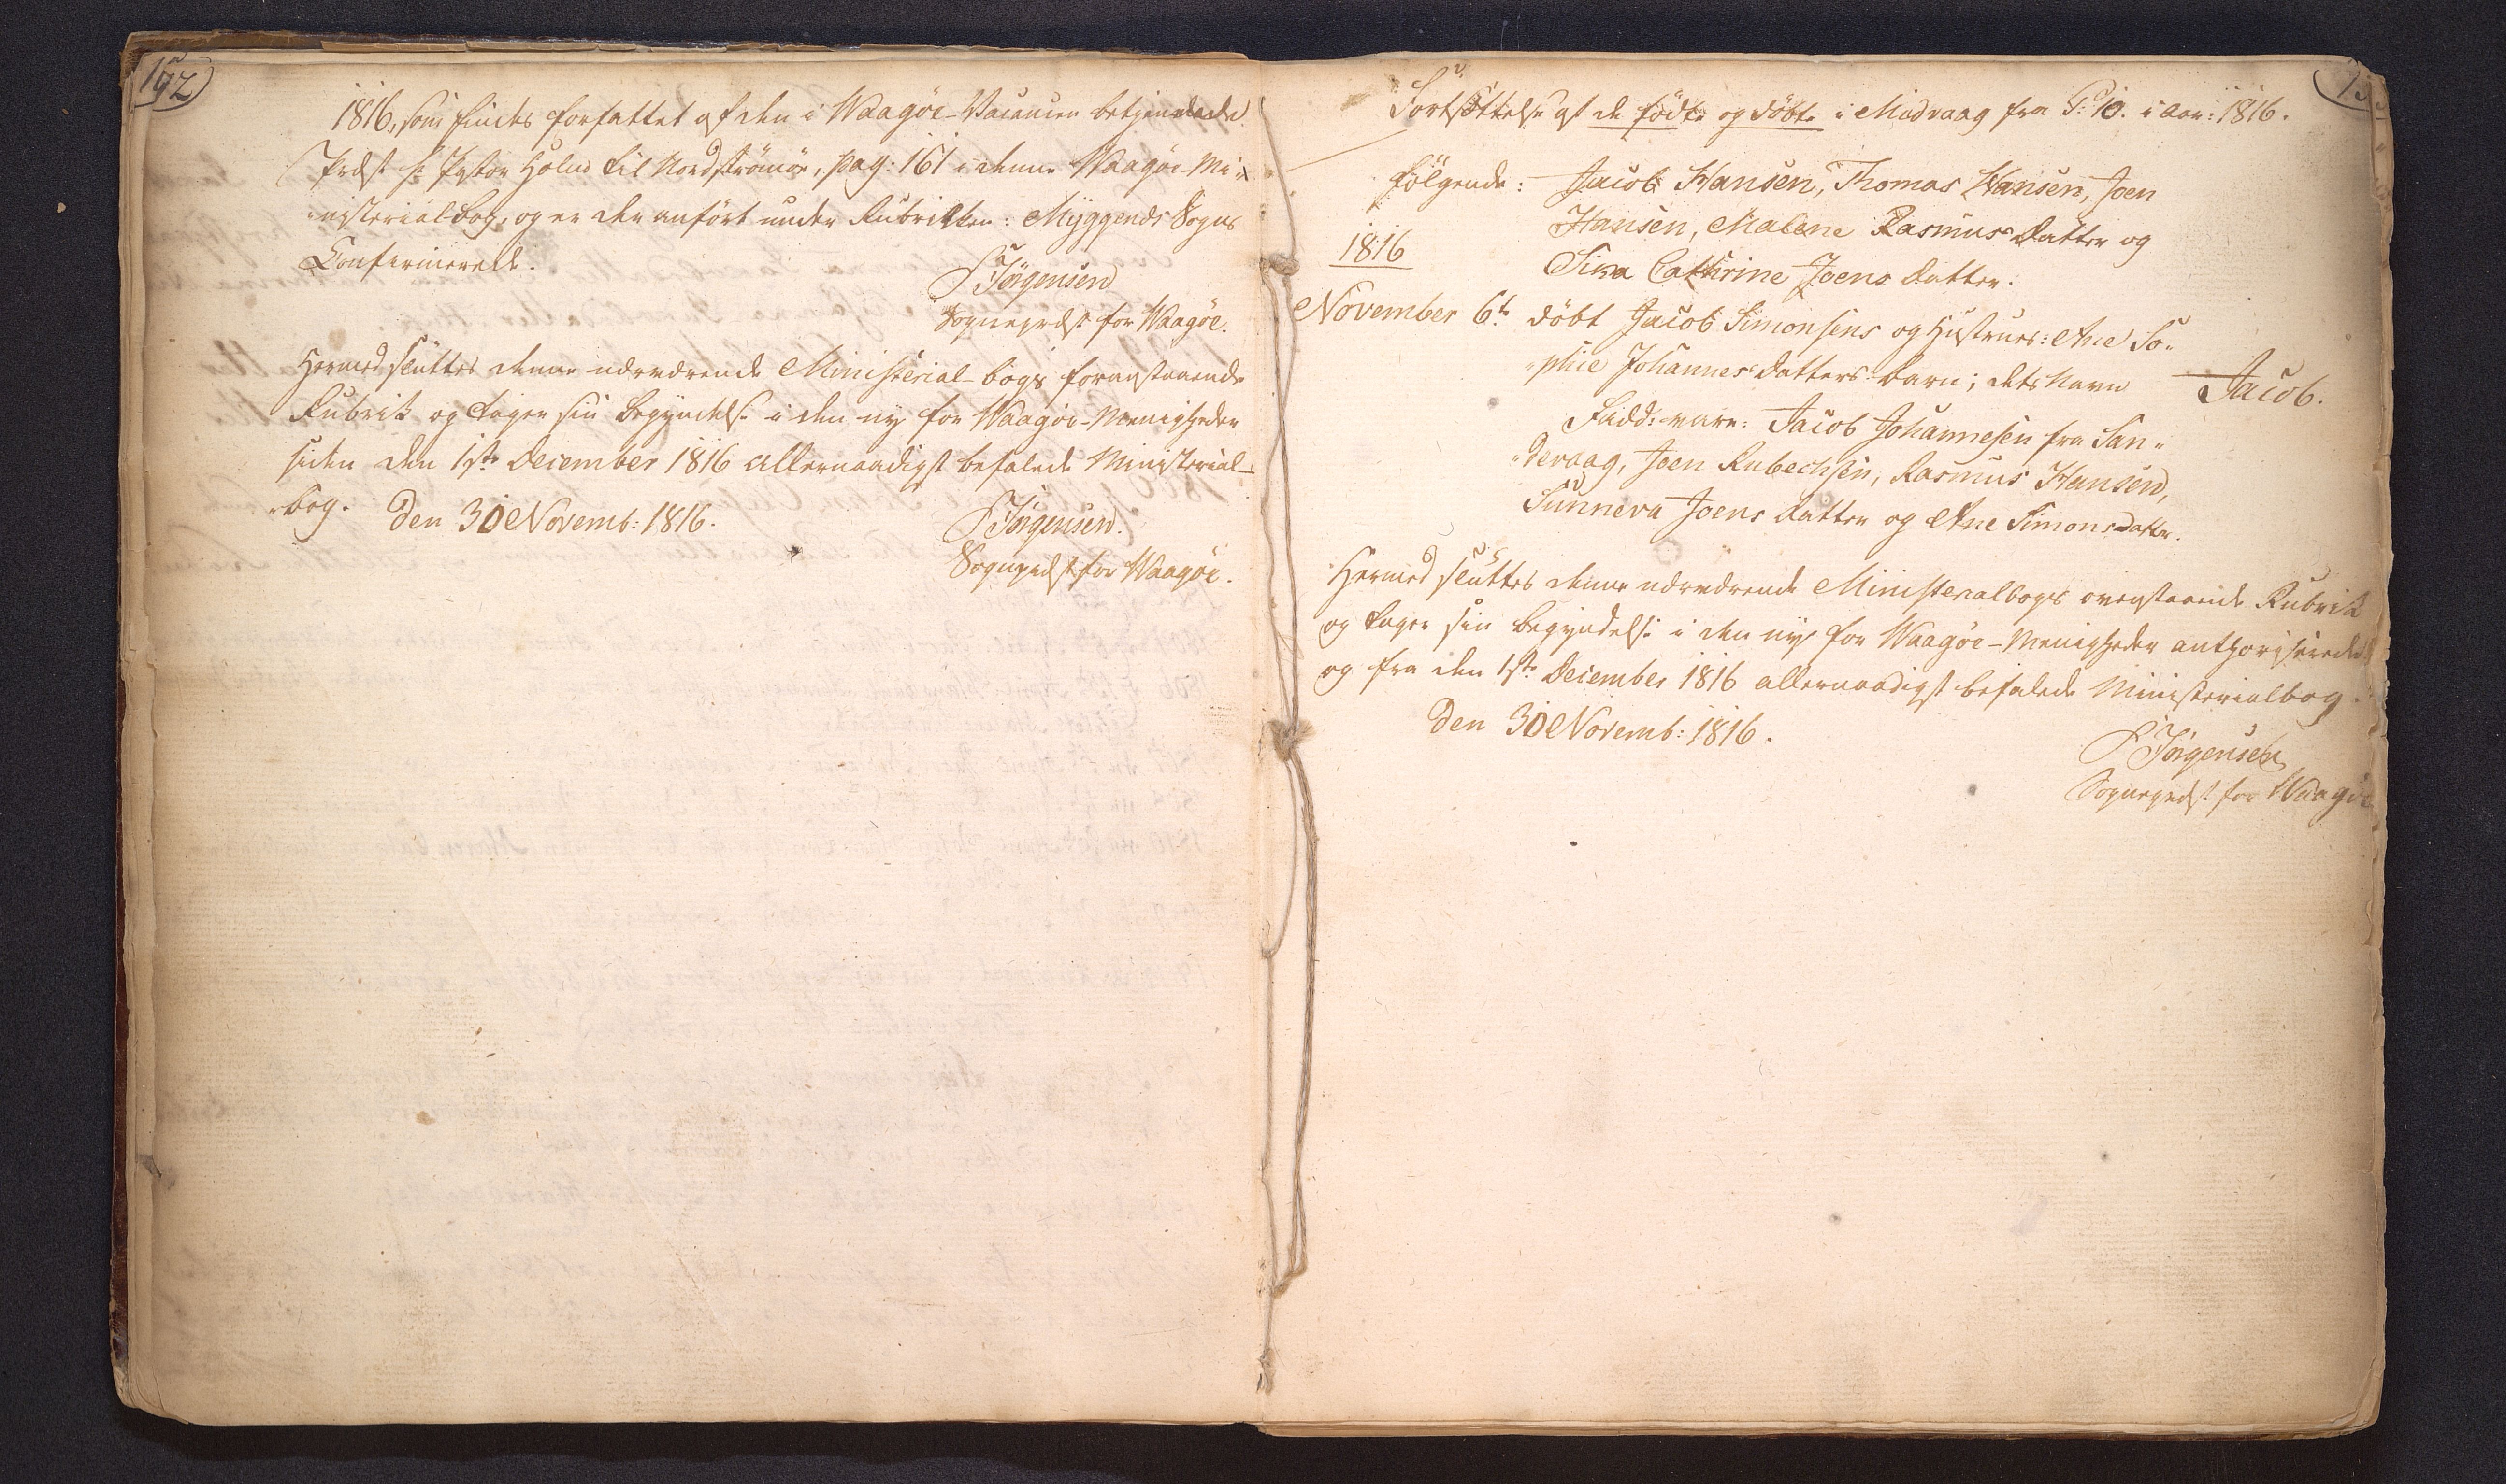 192
1816, som findes forfattet af den i Waagøe-Vacancen betjenende
Præst Hr Pastor Holm til Nordströmöe, pag: 161 i denne Waagöe-Mi-
-nisterialbog, og er der anfört under Rubrikken: Myggenæs Sogns
Confirmerede.
P Jörgensen
Sognepræst for Waagöe.
Hermed sluttes denne nærværende Ministerial-bogs foranstaaende
Rubrik og tager sin Begyndelse i den ny for Waagöe-Menigheder
siden den 1ste December 1816 allernaadigst befalede Ministerial-
-bog. Den 30 Novemb: 1816.
P Jörgensen.
Sognepræst for Waagöe.
Fortsættelse af de födte og döbte i Midvaag fra P: 10. i Aar: 1816.
fölgende: Jacob Hansen, Thomas Hansen, Joen
Hansen, Malene Rasmus Datter og
1816
Sina Cathrine Joens Datter.
November 6te döbt Jacob Simonsens og Hustrues: Ane So-
-phie Johannes Datters Barn; dets Navn Jacob.
Fadd: vare: Jacob Johannesen fra San-
-devaag, Joen Rubechsen, Rasmus Hansen,
Sunneva Joens Datter og Ane Simonsdatter.
Hermed sluttes denne nærværende Ministerialbogs ovenstaaende Rubrik
og tager sin Begyndelse i den nye for Waagöe-Menigheder authoriserede
og fra den 1ste December 1816 allernaadigst befalede Ministerialbog.
Den 30 Novemb: 1816.
P Jörgensen
Sognepræst for Waagöe